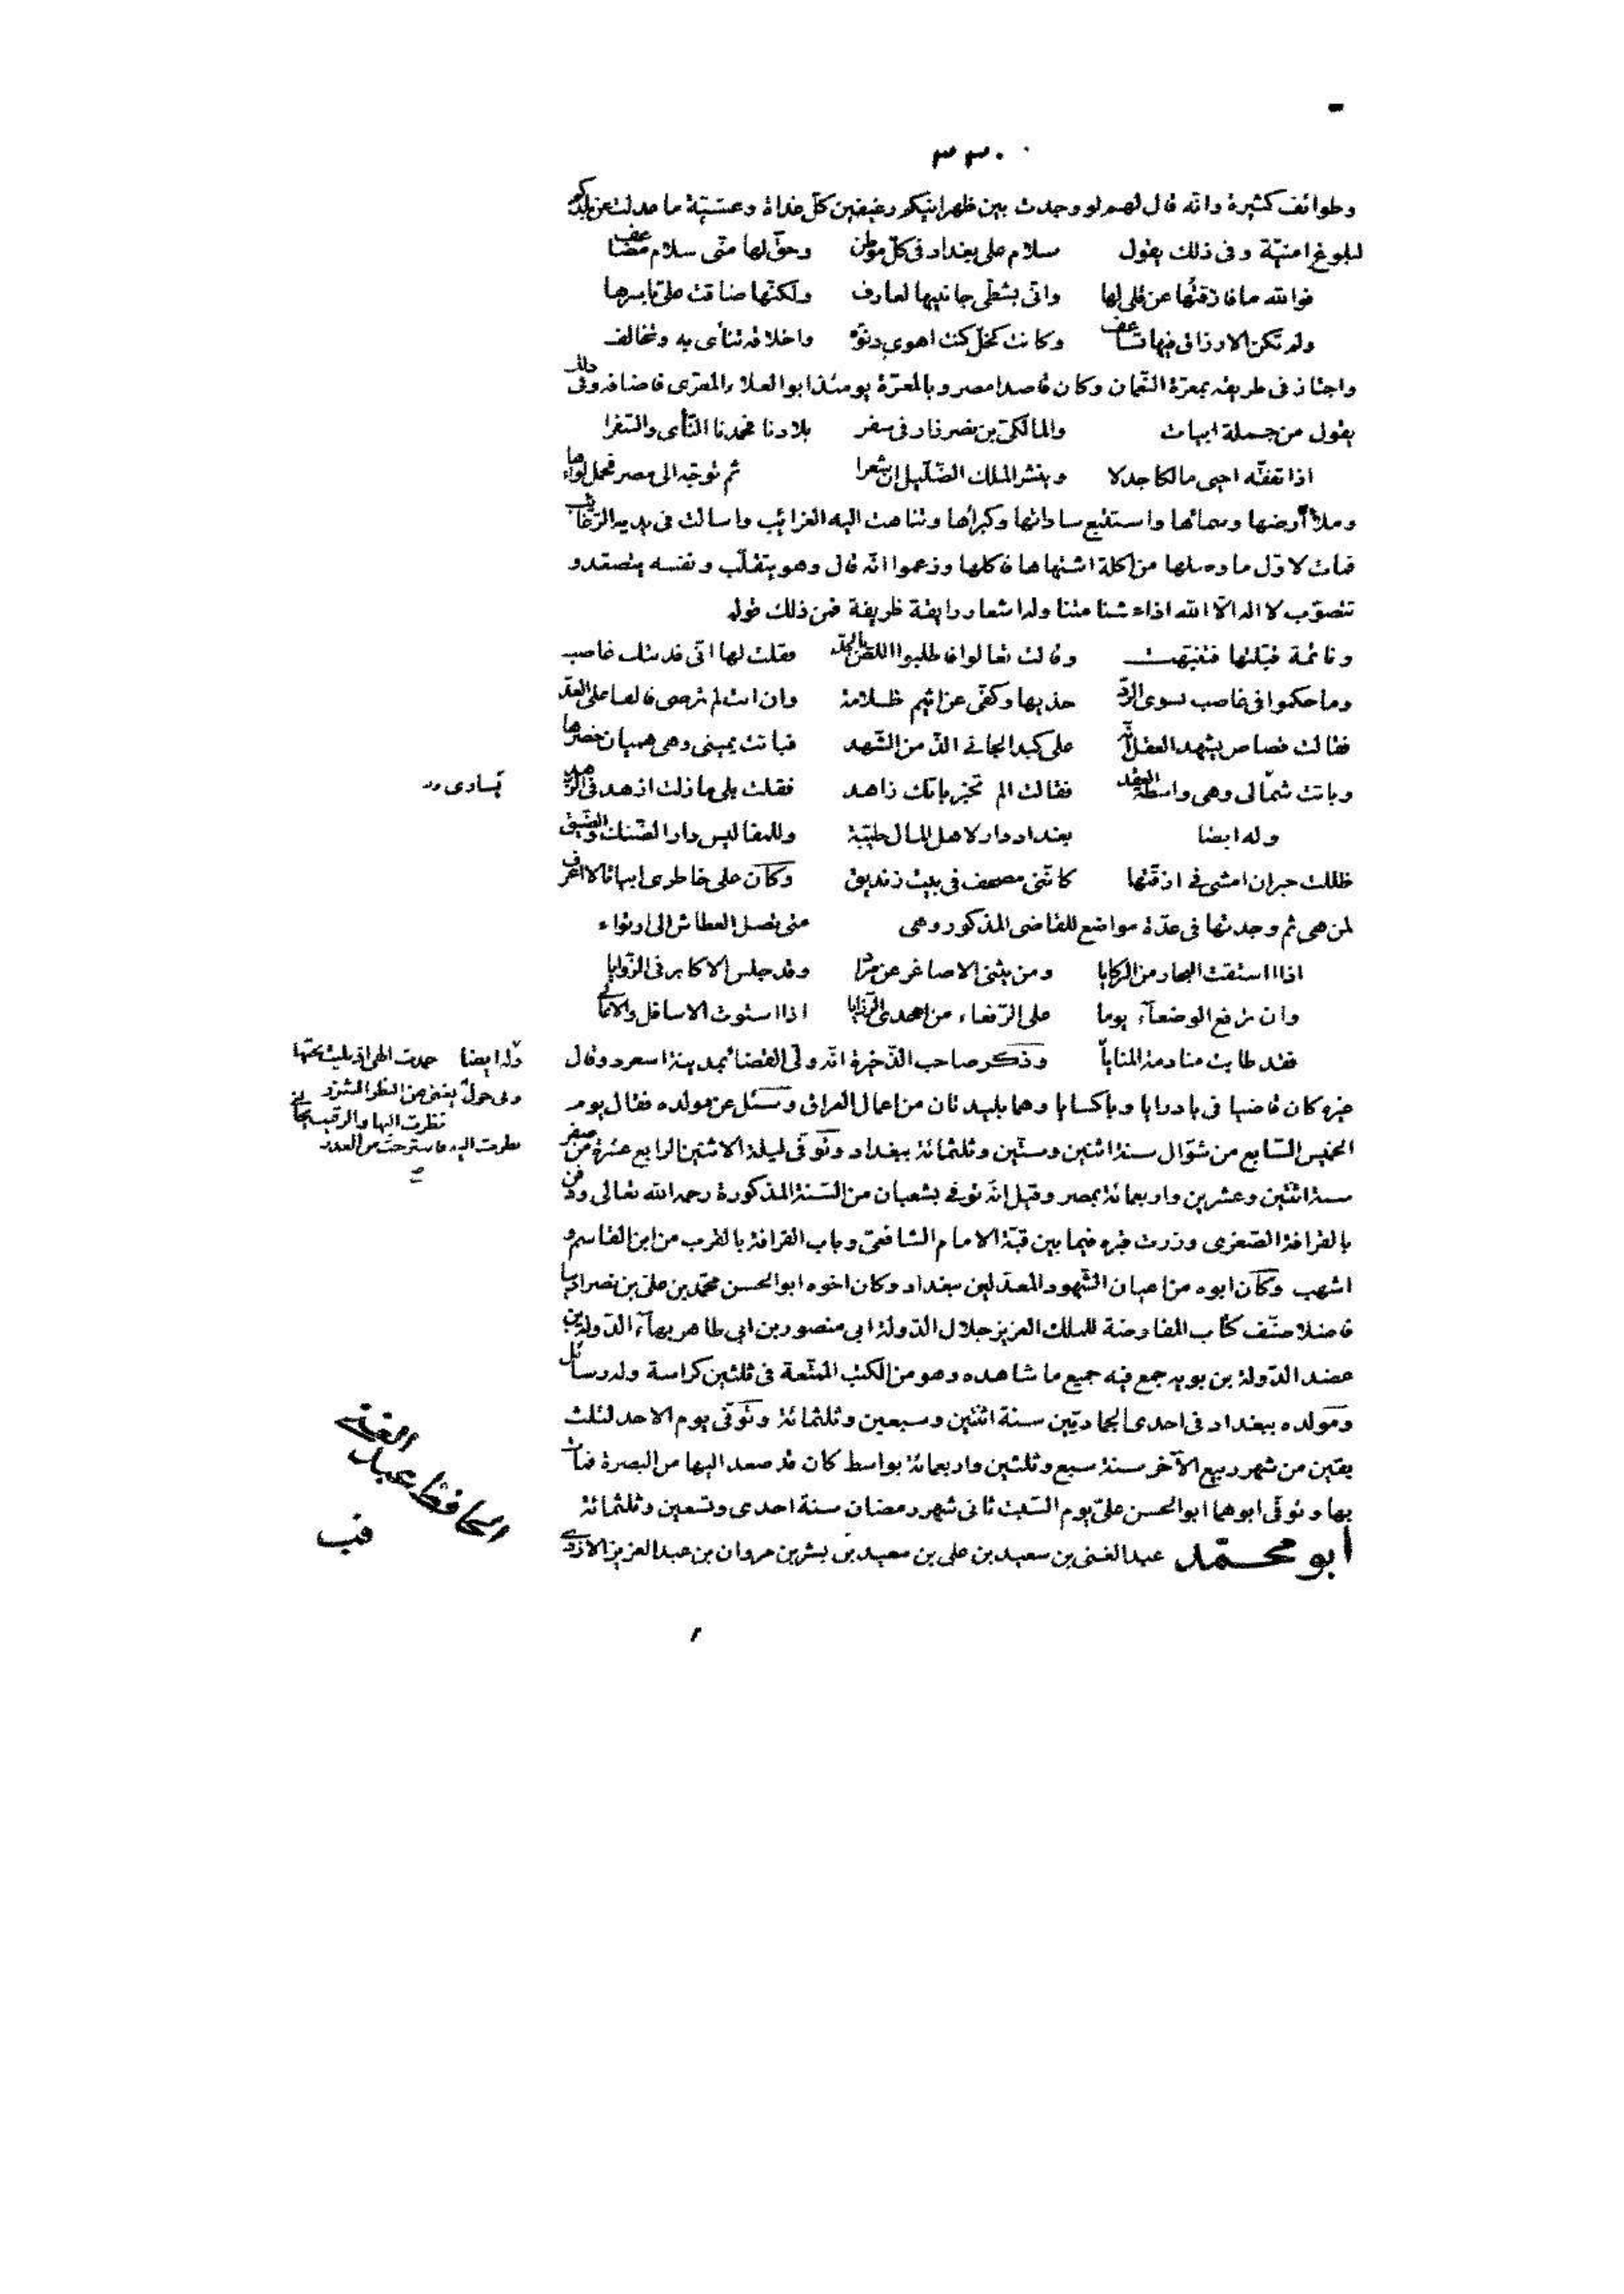 ٣٣٠
وطوائف كثيرة وانه قال لهم لو وجدت بين ظهرانيكم رغيفين كل غداة وعشيّة ما عدلت عن بلدكم
لبلوغ امنيّة وفى ذلك يقول سلام على بغداد فى كلّ موطن وحقّ لها منّى سلام مضاعف
فوالله ما فارقتُها عن قلى لها وانّى بشطّى جانبيها لعارف ولكنّها ضاقت علىّ باسرها
ولم تكن الارزاق فيها تساعف وكانت كخلّ كنت اهوى دنوّه واخلاقه تنأى به وتخالف
واجتاز فى طريقه بمعرّة النّعمان وكان قاصدا مصر وبالمعرّة يومئذ ابو العلاء المعرّى فاضافه وفى ذلك
يقول من جملة ابيات والمالكىّ بن نصر زار فى سفر بلادنا فحمدنا النّأى والسّفرا
اذا تفقّه احيى مالكا جدلا وينشر الملك الضّلّيل ان شعرا ثم توجّه الى مصر فحمل لواءها
وملأ أرضها وسمائها واستتبع ساداتها وكبراءها وتناهت اليه الغرائب واسالت فى يديه الرّغائب
فمات لاوّل ما وصلها من اكلة اشتهاها فاكلها وزعموا انّه قال وهو يتقلّب ونفسه يتصعّد و
تتصوّب لا اله الّا الله اذا عشنا متنا وله اشعار رايقة ظريفة فمن ذلك قوله
ونائمة قبّلتها فتنبّهت وقالت تعالوا فاطلبوا اللصّ بالحدّ فقلت لها انّى فديتك غاصب
وما حكموا فى غاصب بسوى الردّ خذيها وكفّى عن اثيم ظلامة وان انت لم ترضى فالفا على العدّ
فقالت قصاص يشهد العقل انّه على كبد الجانى الذّ من الشّهد فباتت يمينى وهى هميان خصرها
وباتت شمالى وهى واسطة العقد فقالت الم تخبر بانّك زاهد فقلت بلى ما زلت ازهد فى الزهد
وله ايضا بغداد دار لاهل المال طيّبة وللمفاليس دار الضّنك والضّيق
ظللت حيران امشى فى ازقّتها كانّنى مصحف فى بيت زنديق وكان على خاطرى ابياتا لا اعرف
لمن هى ثم وجدتها فى عدّة مواضع للقاضى المذكور وهى متى تصل العطاش الى ارتواء
اذا استقت البحار من الركايا ومن يثنى الاصاغر عن مرادٍ وقد جلس الاكابر فى الزّوايا
وان ترفع الوضعاء يوما على الرّفعاء من احدى الرّزايا اذا استوت الاسافل والاعالى
فقد طابت منادمة المنايا وذكر صاحب الذّخيرة انّه ولى القضاء بمدينة اسعرد وقال
غيره كان قاضيا فى بادرايا وباكسايا وهما بليدتان من اعمال العراق وسئل عن مولده فقال يوم
الخميس السّابع من شوّال سنة اثنتين وستّين وثلثمائة ببغداد وتوفّى ليلة الاثنين الرابع عشرة من صفر
سنة اثنتين وعشرين واربعمائة بمصر وقيل إنّه توفى بشعبان من السّنة المذكورة رحمه الله تعالى ودفن
بالقرافة الصّغرى وزرت قبره فيما بين قبّة الامام الشافعىّ وباب القرافة بالقرب من ابن القاسم و
اشهب وكان ابوه من اعيان الشّهود المعدّلين ببغداد وكان اخوه ابو الحسن محمّد بن علىّ بن نصر اديبا
فاضلا صنّف كتاب المفاوضة للملك العزيز جلال الدّولة ابى منصور بن ابى طاهر بهآء الدّولة بن
عضد الدّولة بن بويه جمع فيه جميع ما شاهده وهو من الكتب الممتّعة فى ثلثين كراسة وله رسائل
ومولده ببغداد فى احدى الجماديّين سنة اثنتين وسبعين وثلثمائة وتوفّى يوم الاحد لثلث
بقين من شهر ربيع الآخر سنة سبع وثلثين واربعمائة بواسط كان قد صعد اليها من البصرة فمات
بها وتوفّى ابوهما ابو الحسن علىّ يوم السّبت ثانى شهر رمضان سنة احدى وتسعين وثلثمائة
أبو محمّد عبد الغنى بن سعيد بن على بن سعيد بن بشر بن مروان بن عبد العزيز الازدى
وله ايضا حمدت الهى اذ بليت بحبّها
وبى حول يغنى عن النظر الشزر
نظرت اليها والرقيب يخالنى
نظرت اليه فاسترحت من العذر
الحافظ عبد الغنى